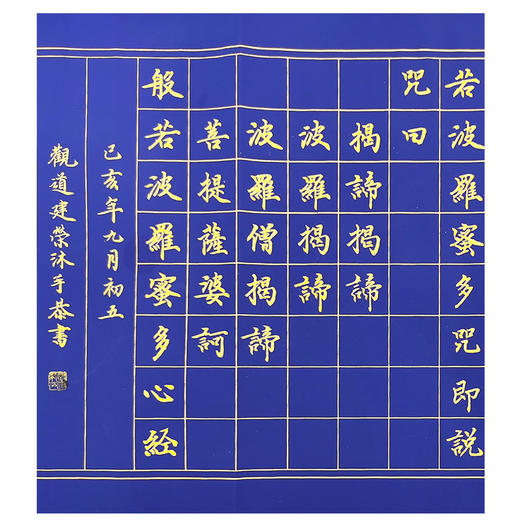 若波羅蜜多咒即說
咒曰
揭諦揭諦
波羅揭諦
波羅僧揭諦
菩提薩婆訶
般若波羅蜜多心経
己亥年九月初五
觀道建榮沐手恭書